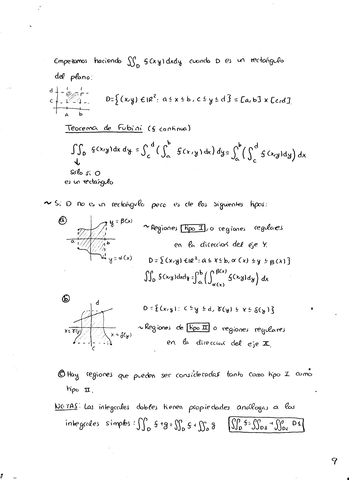 Empezamos haciendo ∬_D f(x,y)dxdy cuando D es un rectángulo
del plano:
d
c
a b
D={(x,y)∈ℝ²: a≤x≤b, c≤y≤d} = [a,b]×[c,d]
Teorema de Fubini (f continua)
∬_D f(x,y)dx dy = ∫_c^d (∫_a^b f(x,y)dx) dy = ∫_a^b (∫_c^d f(x,y)dy) dx
↓
Solo si D
es un rectángulo
~ Si D no es un rectángulo pero es de los siguientes tipos:
ⓐ
y = β(x)
a b
y = α(x)
~ Regiones tipo I, o regiones regulares
en la dirección del eje Y.
D={(x,y)∈ℝ²: a≤x≤b, α(x)≤y≤β(x)}
∬_D f(x,y)dxdy = ∫_a^b (∫_α(x)^β(x) f(x,y)dy) dx
ⓑ
d
x=γ(y)
x=δ(y)
c
D={(x,y): c≤y≤d, γ(y)≤x≤δ(y)}
~ Regiones de tipo II o regiones regulares
en la dirección del eje X.
ⓒ Hay regiones que pueden ser consideradas tanto como tipo I como
tipo II.
NOTAS: Las integrales dobles tienen propiedades análogas a las
integrales simples: ∬_D f+g = ∬_D f + ∬_D g
9